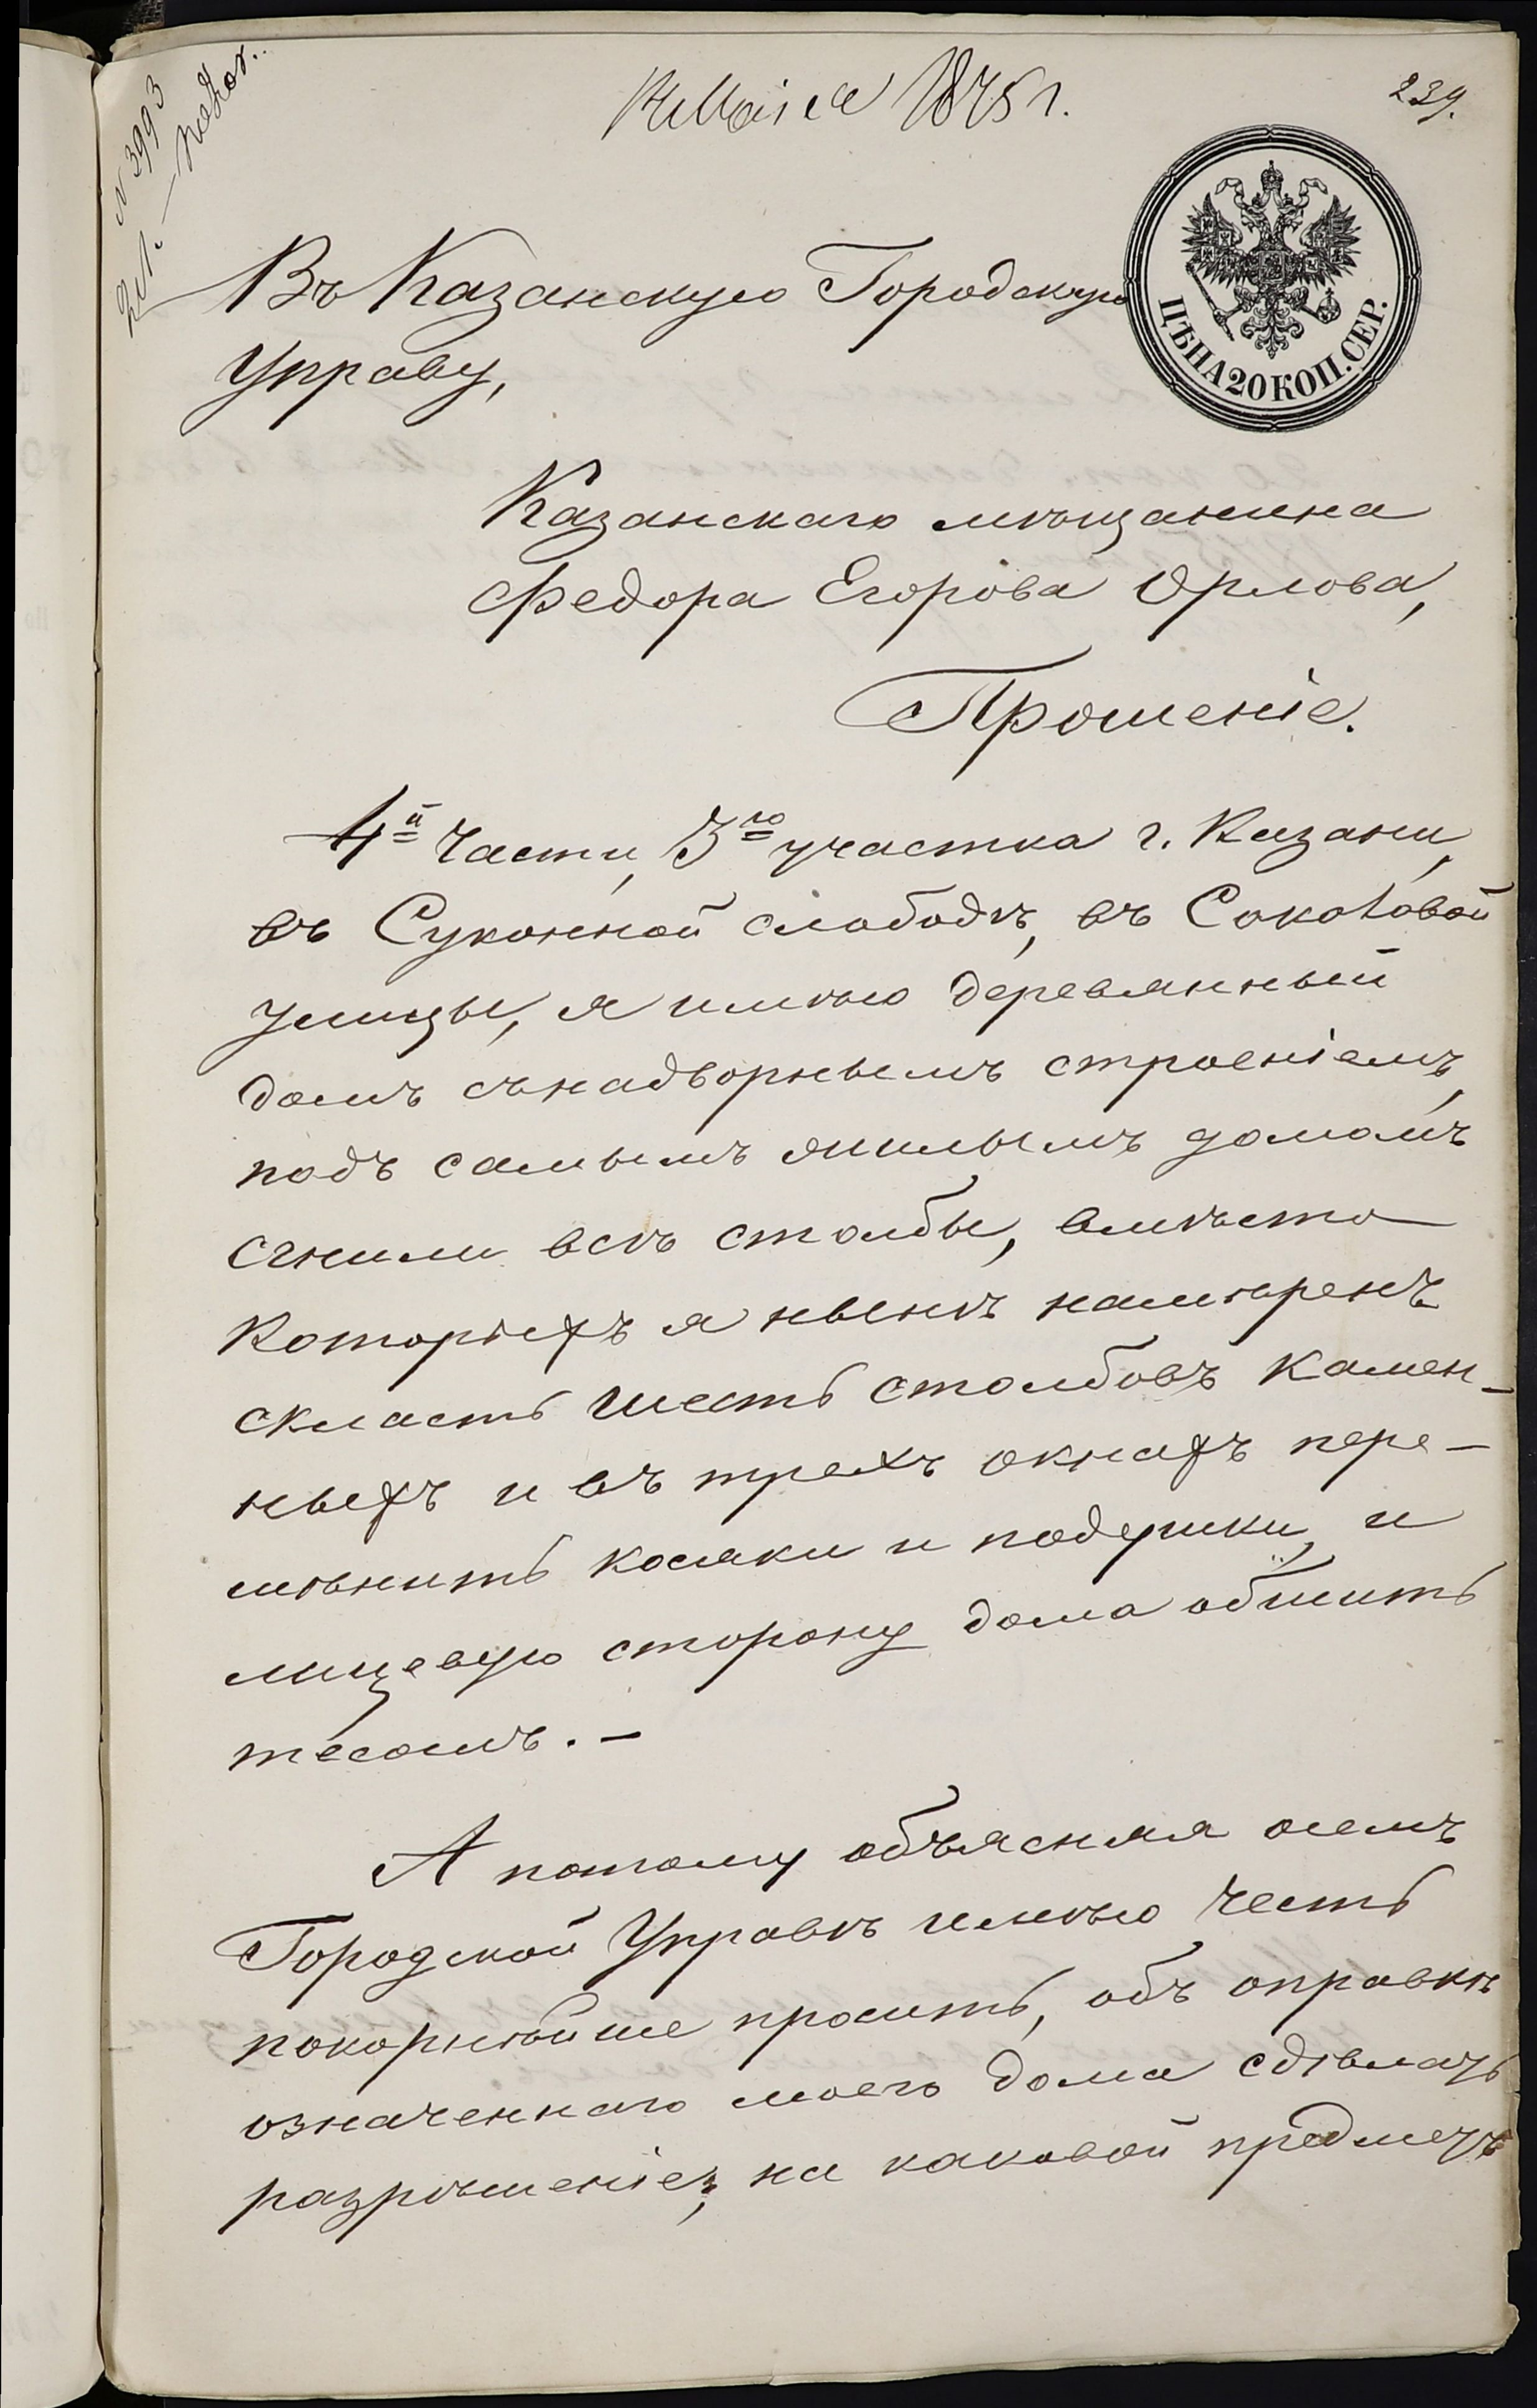 Мая 1875 г.
239.
N 3993
ЦѢНА 20 КОП. СЕР.
Въ Казанскую Городскую
Управу,
Казанскаго мѣщанина
Федора Егорова Орлова,
Прошеніе.
4й Части, 3го участка г. Казани,
въ Суконной слободѣ, въ
улицы, я имѣю деревянный
домъ съ надворнымъ строеніемъ,
подъ самымъ жилымъ домомъ
сгнили всѣ столбы, вмѣсто
которыхъ я нынѣ намѣренъ
скласть шесть столбовъ камен-
ныхъ и въ трехъ окнахъ пере-
мѣнить косяки и подушки, и
лицевую сторону дома обшить
тесомъ. -
А потому объясняя о семъ
Городской Управѣ имѣю честь
покорнѣйше просить, объ оправкѣ
означеннаго моего дома сдѣлать
разрѣшеніе, на каковой предметъ